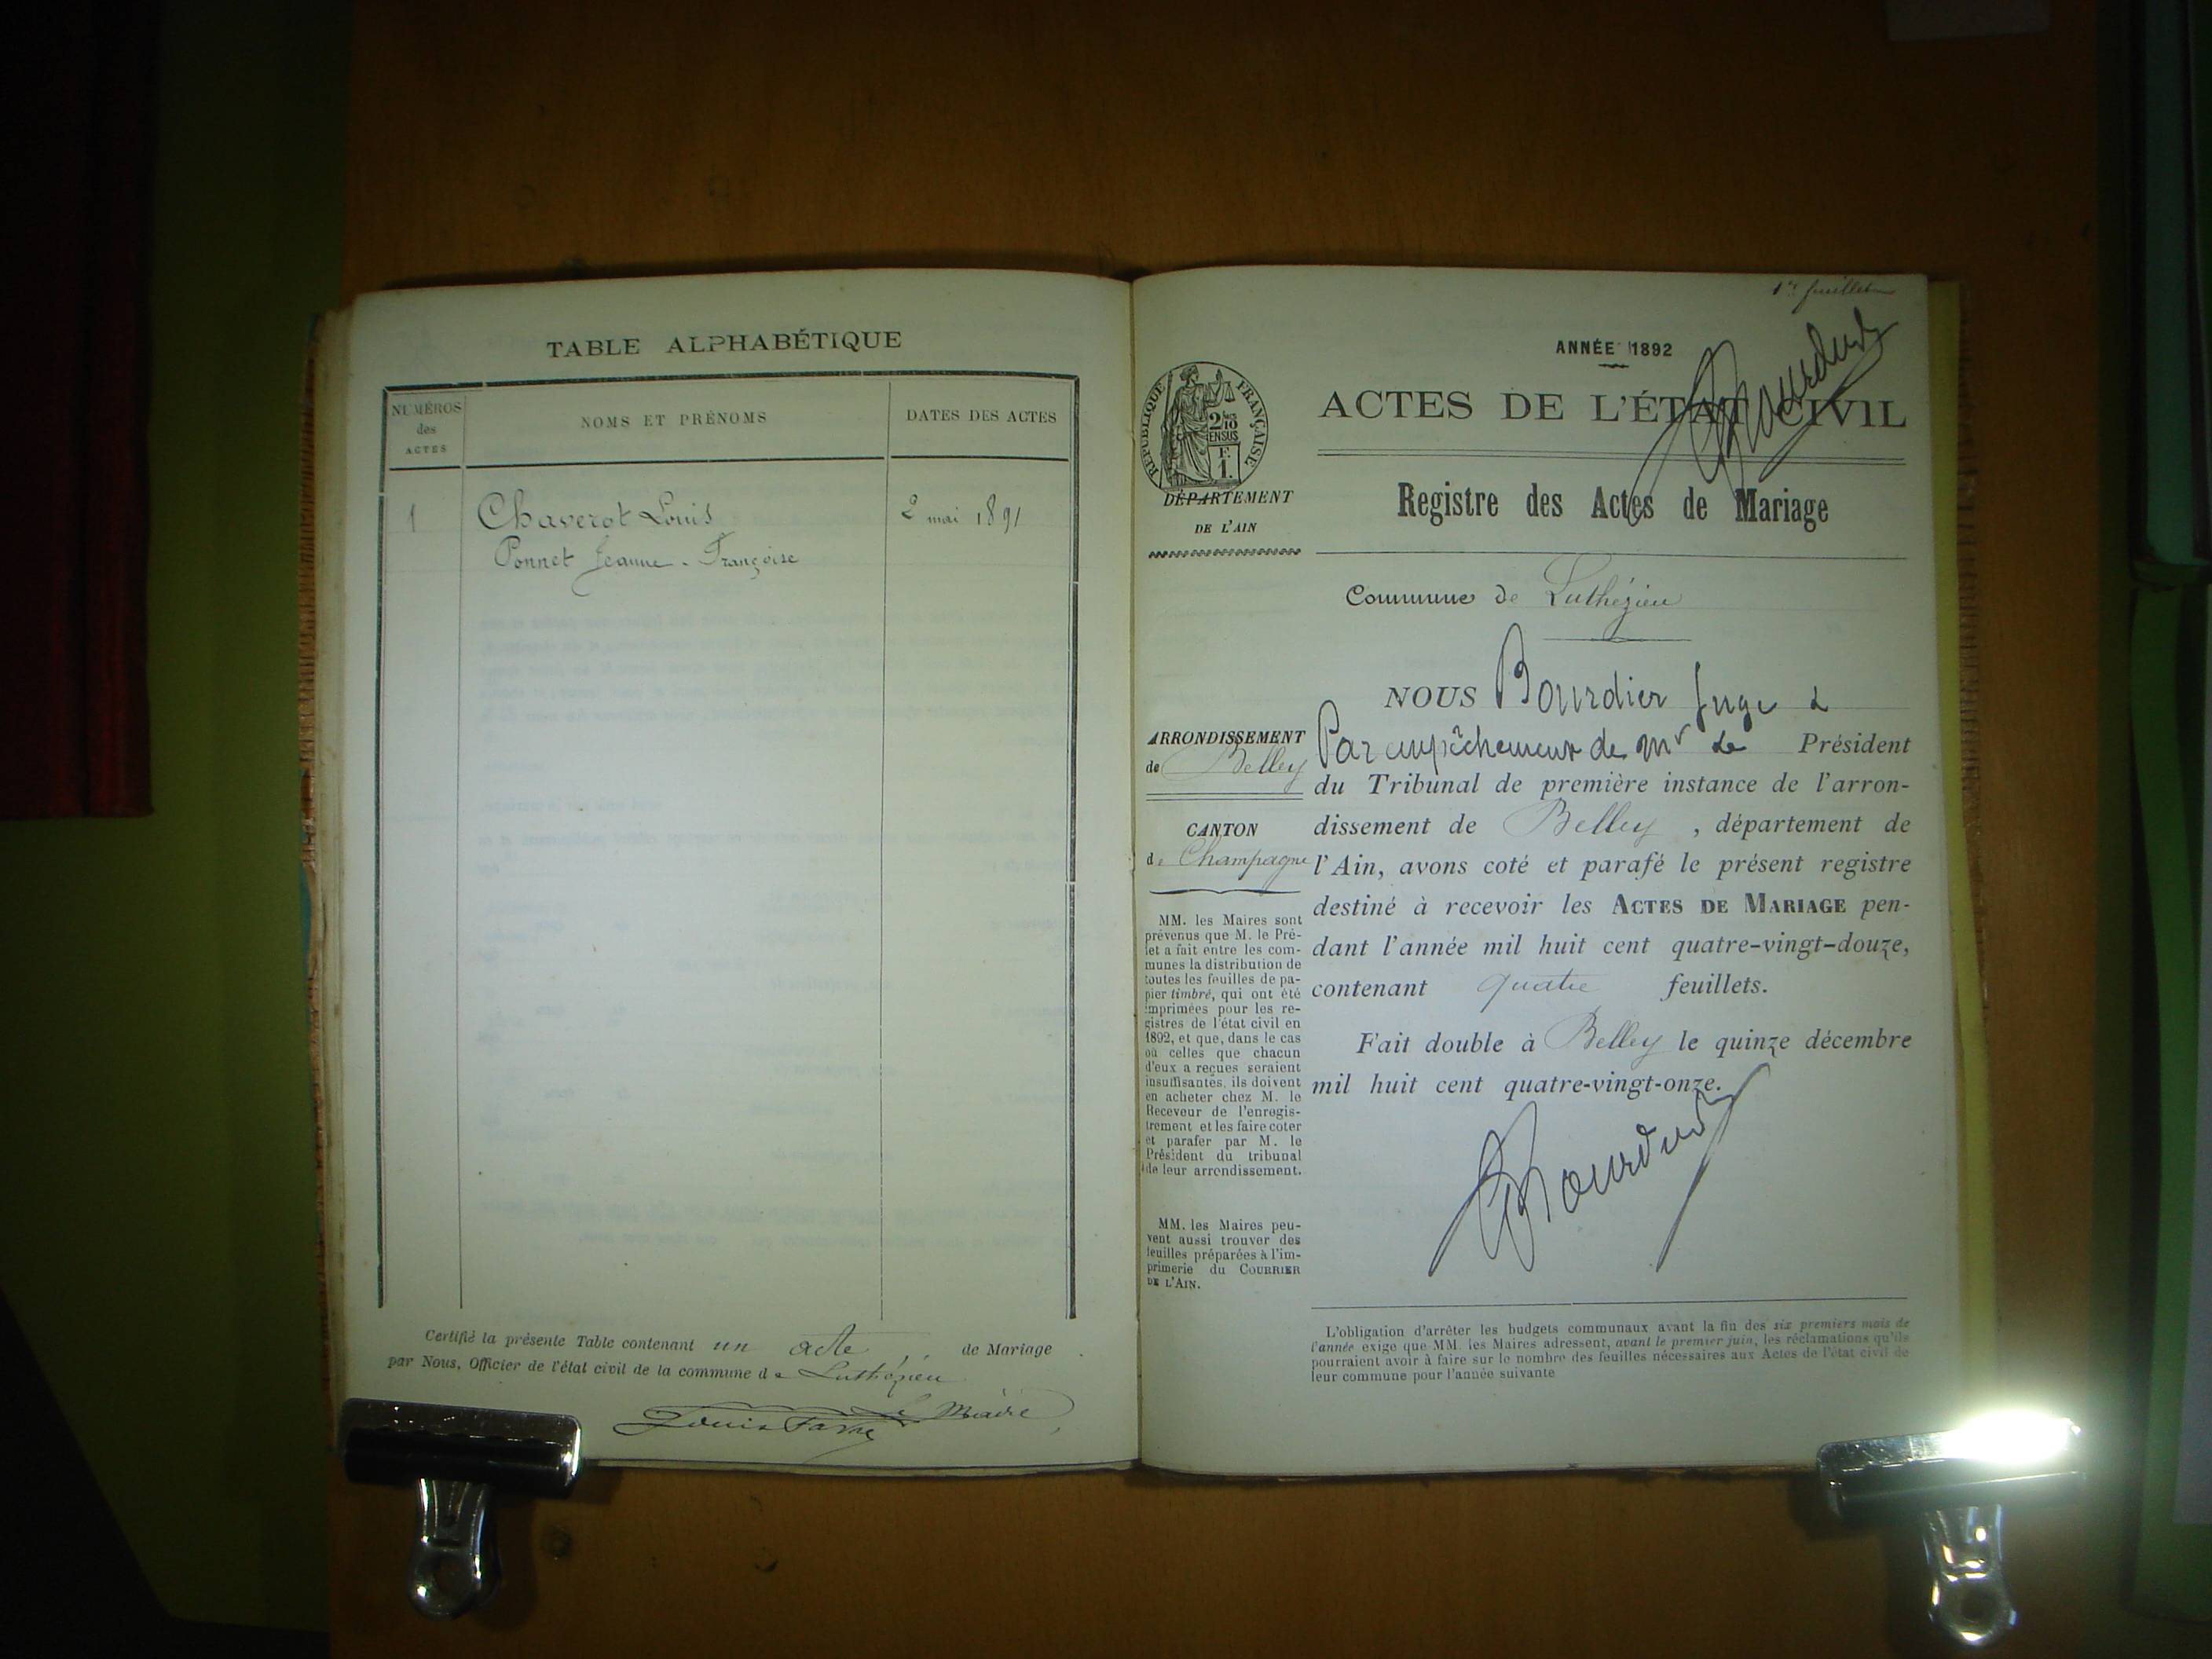 TABLE ALPHABÉTIQUE
NUMÉROS
des
ACTES
NOMS ET PRÉNOMS
DATES DES ACTES
1 Chaverot Louis 2 mai 1891
Ponnet Jeanne-Françoise
Certifié la présente Table contenant un acte de Mariage
par Nous, Officier de l'état civil de la commune de Luthézieu
Le Maire
Louis Favre
1er feuillet
ANNÉE 1892
ACTES DE L'ÉTAT CIVIL
RÉPUBLIQUE FRANÇAISE
2/10
EN SUS
F.
1.
DÉPARTEMENT
DE L'AIN
Registre des Actes de Mariage
Commune de Luthézieu
ARRONDISSEMENT
de Belley
CANTON
de Champagne
MM. les Maires sont
prévenus que M. le Pré-
fet a fait entre les com-
munes la distribution de
toutes les feuilles de pa-
pier timbré, qui ont été
imprimées pour les re-
gistres de l'état civil en
1892, et que, dans le cas
où celles que chacun
d'eux a reçues seraient
insuffisantes, ils doivent
en acheter chez M. le
Receveur de l'enregis-
trement et les faire coter
et parafer par M. le
Président du tribunal
de leur arrondissement.
MM. les Maires peu-
vent aussi trouver des
feuilles préparées à l'im-
primerie du COURRIER
DE L'AIN.
NOUS Bourdier Juge
Par empêchement de Mr le Président
du Tribunal de première instance de l'arron-
dissement de Belley, département de
l'Ain, avons coté et parafé le présent registre
destiné à recevoir les ACTES DE MARIAGE pen-
dant l'année mil huit cent quatre-vingt-douze,
contenant quatre feuillets.
Fait double à Belley le quinze décembre
mil huit cent quatre-vingt-onze.
Bourdier
L'obligation d'arrêter les budgets communaux avant la fin des six premiers mois de
l'année exige que MM. les Maires adressent, avant le premier juin, les réclamations qu'ils
pourraient avoir à faire sur le nombre des feuilles nécessaires aux Actes de l'état civil de
leur commune pour l'année suivante